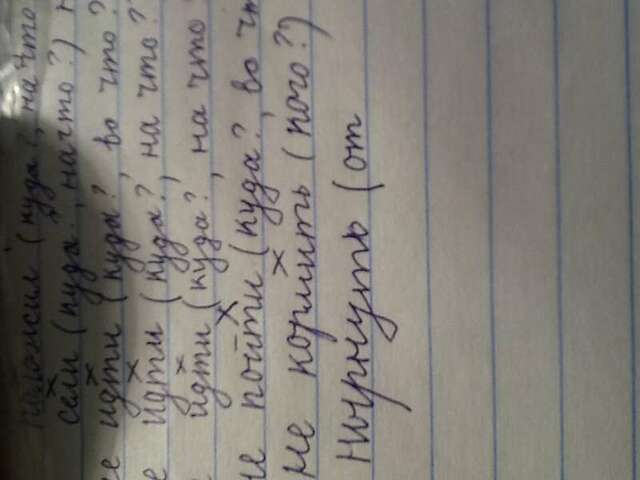 положил (куда?, на что
сели (куда?, на что?) н
не идти (куда?, во что?
е идти (куда?, на что?
идти (куда?, на что?
не пойти (куда?, во чт
не кормить (кого?)
нырнуть (от